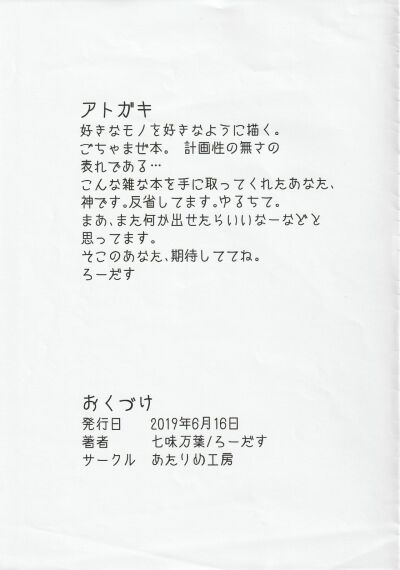 アトガキ
好きなモノを好きなように描く。
ごちゃまぜ本。 計画性の無さの
表れである…
こんな雑な本を手に取ってくれたあなた、
神です。反省してます。ゆるちて。
まあ、また何が出せたらいいなーなどと
思ってます。
そこのあなた、期待しててね。
ろーだす
おくづけ
発行日 2019年6月16日
著者 七味万葉/ろーだす
サークル あたりめ工房